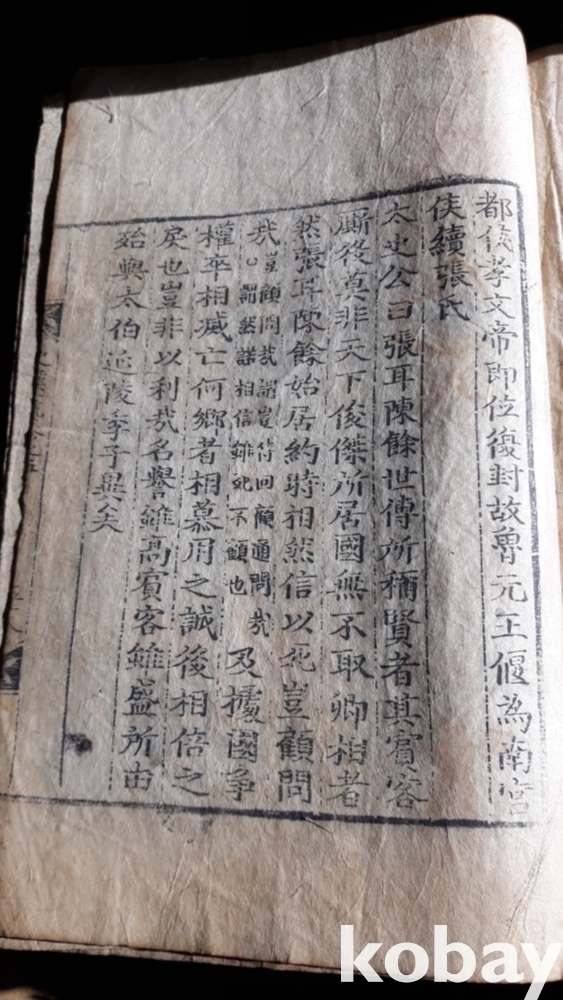 都侯孝文帝即位復封故魯元王偃為南宮
侯續張氏
太史公曰張耳陳餘世傳所稱賢者其賓客
厮役莫非天下俊傑所居國無不取卿相者
然張耳陳餘始居約時相然信以死豈顧問
哉
豈顧問哉謂豈待回顧通問哉
謂然諾相信雖死不顧也
及據國爭
權卒相滅亡何鄉者相慕用之誠後相倍之
戾也豈非以利哉名譽雖高賓客雖盛所由
殆與太伯延陵季子異矣
kobay